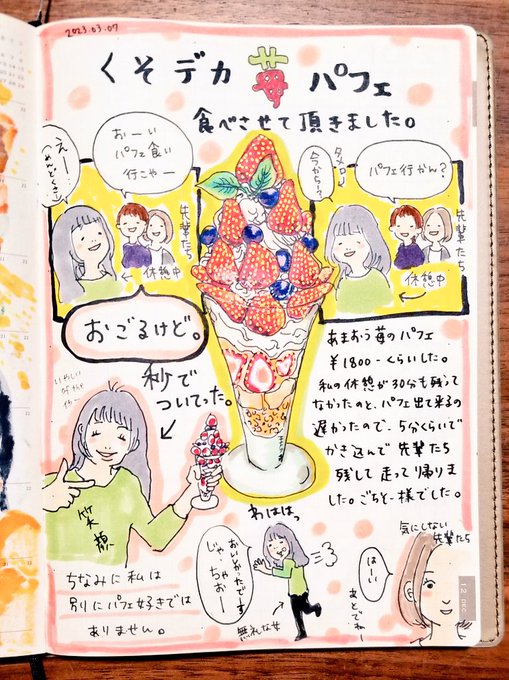 2023.03.07
くそデカ苺パフェ
食べさせて頂きました。
えー
(めんどくさっ)
おーい
パフェ食い
行こやー
先輩たち
休憩中
今から!?
タメロー↓
パフェ行かん?
先輩たち
休憩中
おごるけど。
秒で
ついてった。
あまおう苺のパフェ
¥1800-くらいした。
私の休憩が30分も残って
なかったのと、パフェ出て来るの
遅かったので、5分くらいで
かき込んで先輩たち
残して走って帰りま
した。ごちそー様でした。
ちなみに私は
別にパフェ好きでは
ありません。
わははっ
おいしかったでーす
じゃ、
ちゃおー
無礼な女
気にしない
先輩たち
はーい
あとでねー
12 DEC